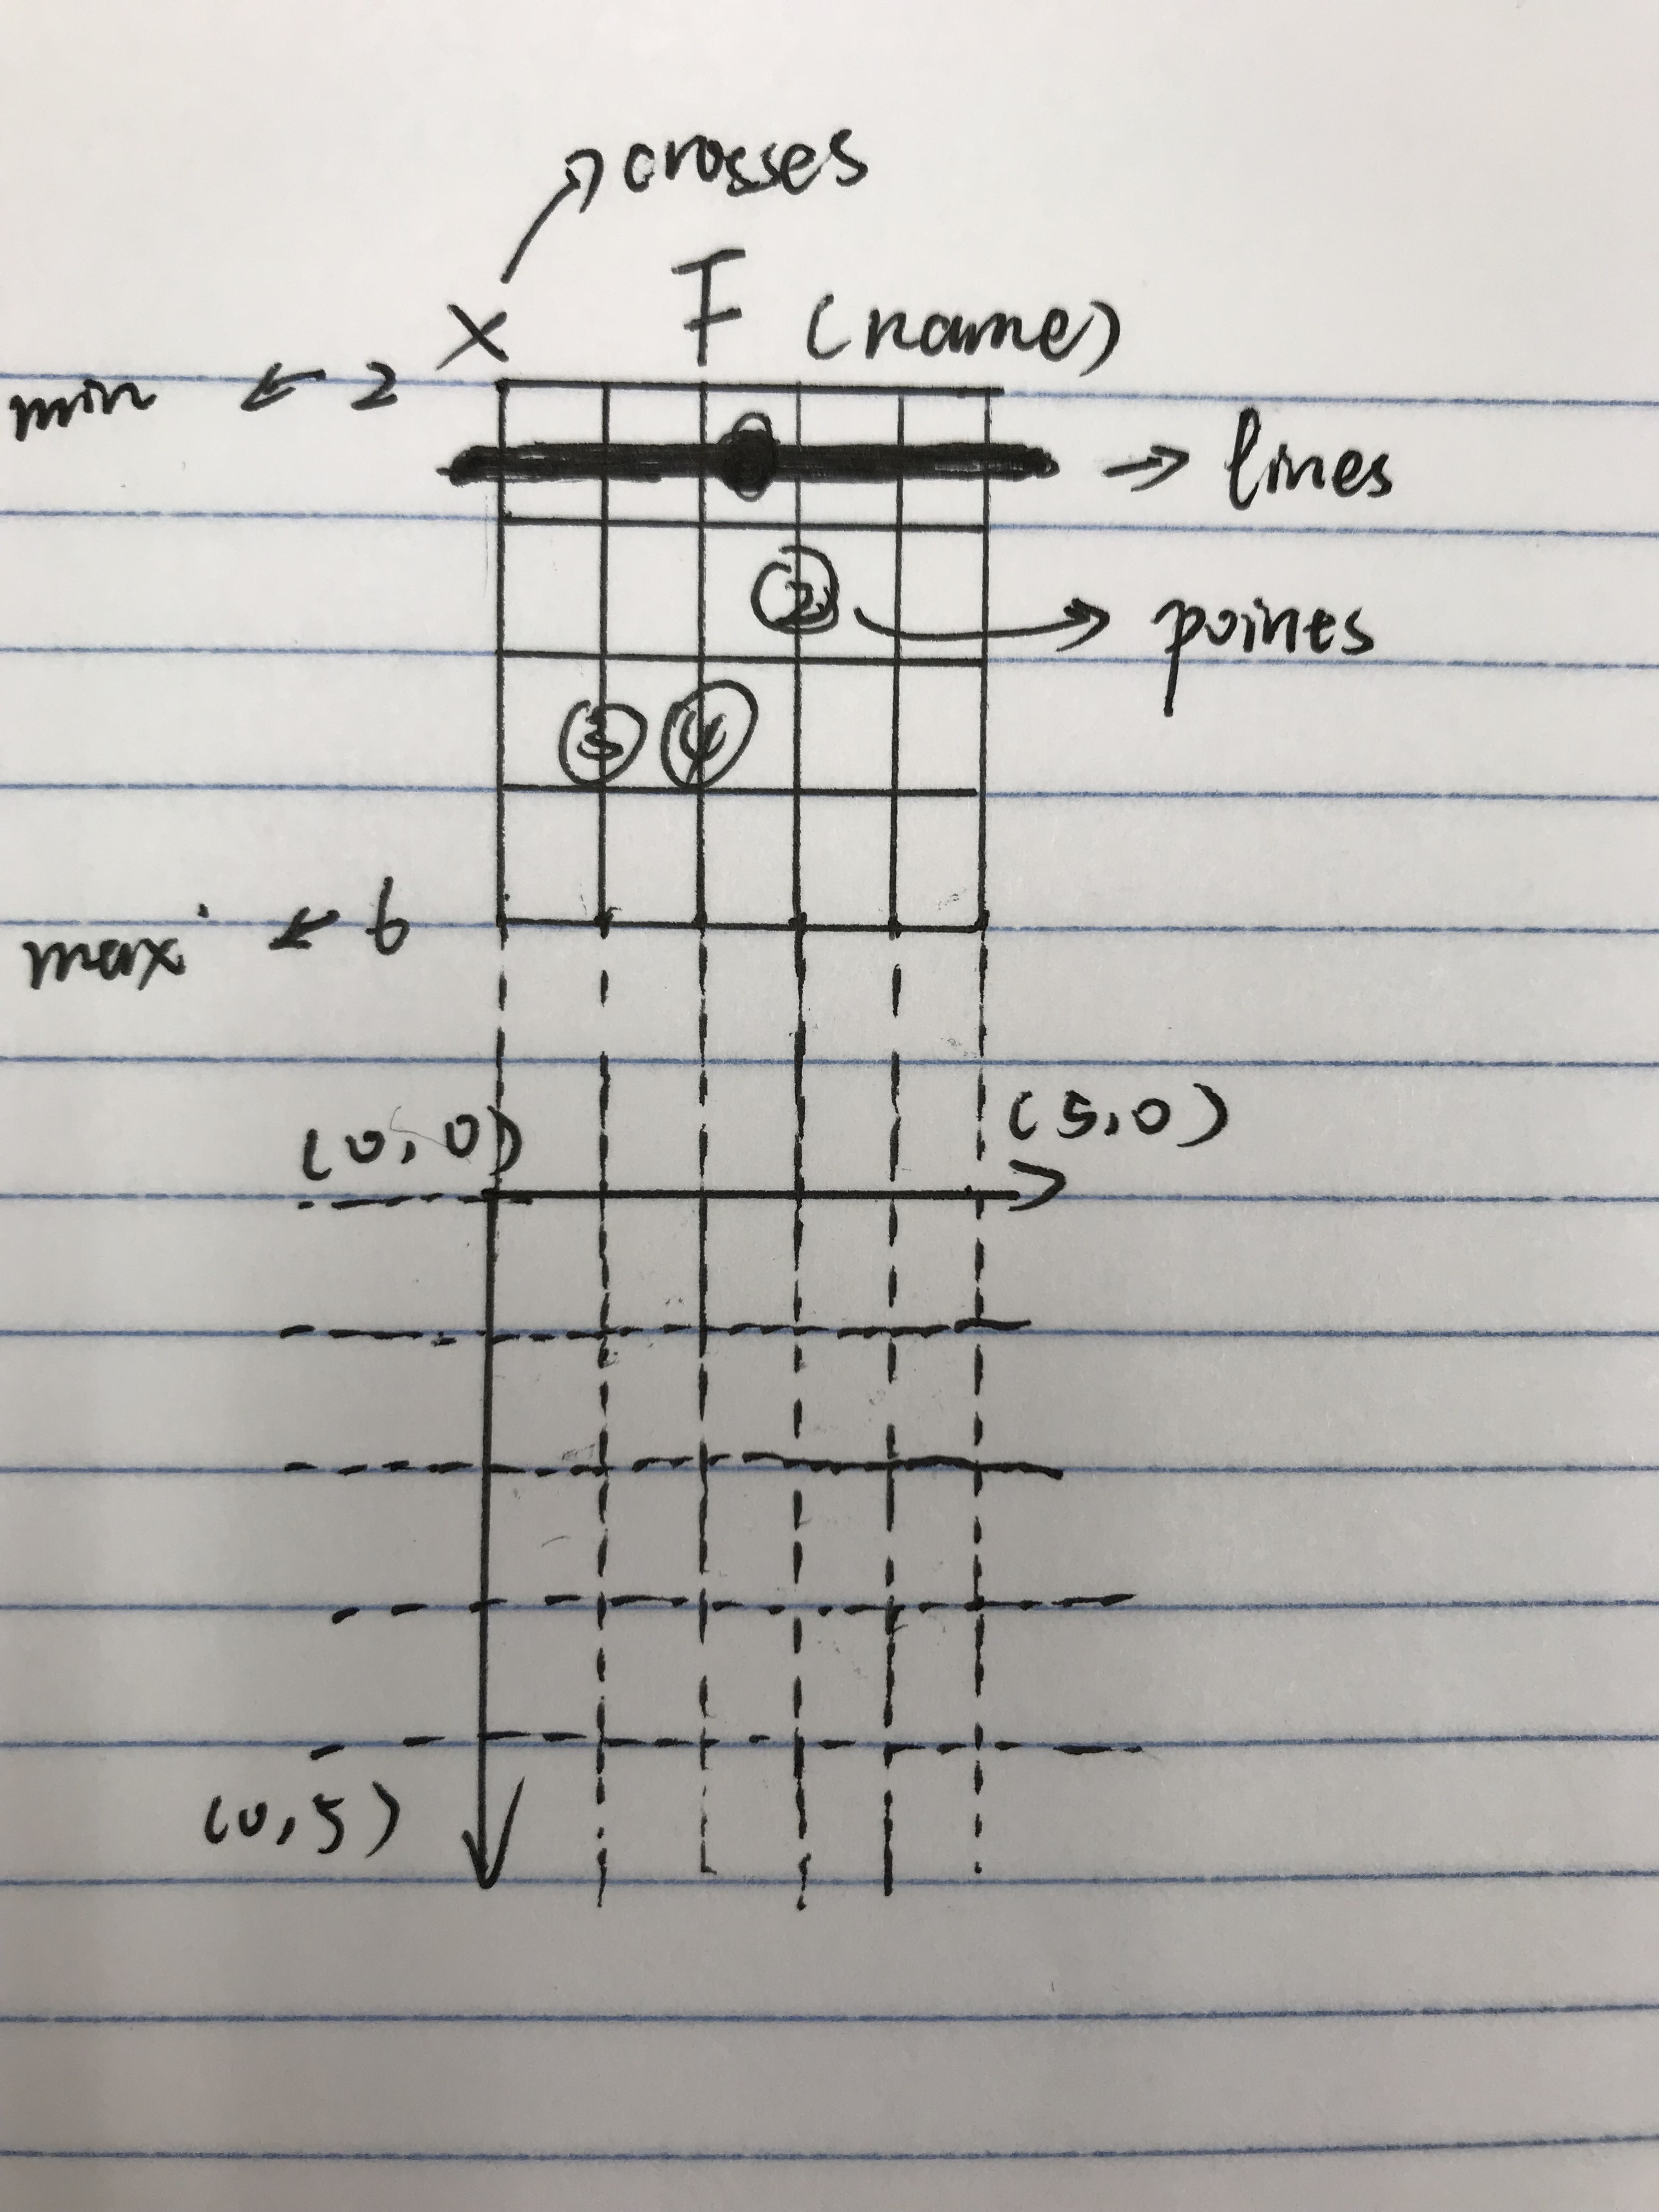 crosses
X F (name)
min 2
lines
2
points
3 4
max 6
(0,0) (5,0)
(0,5)